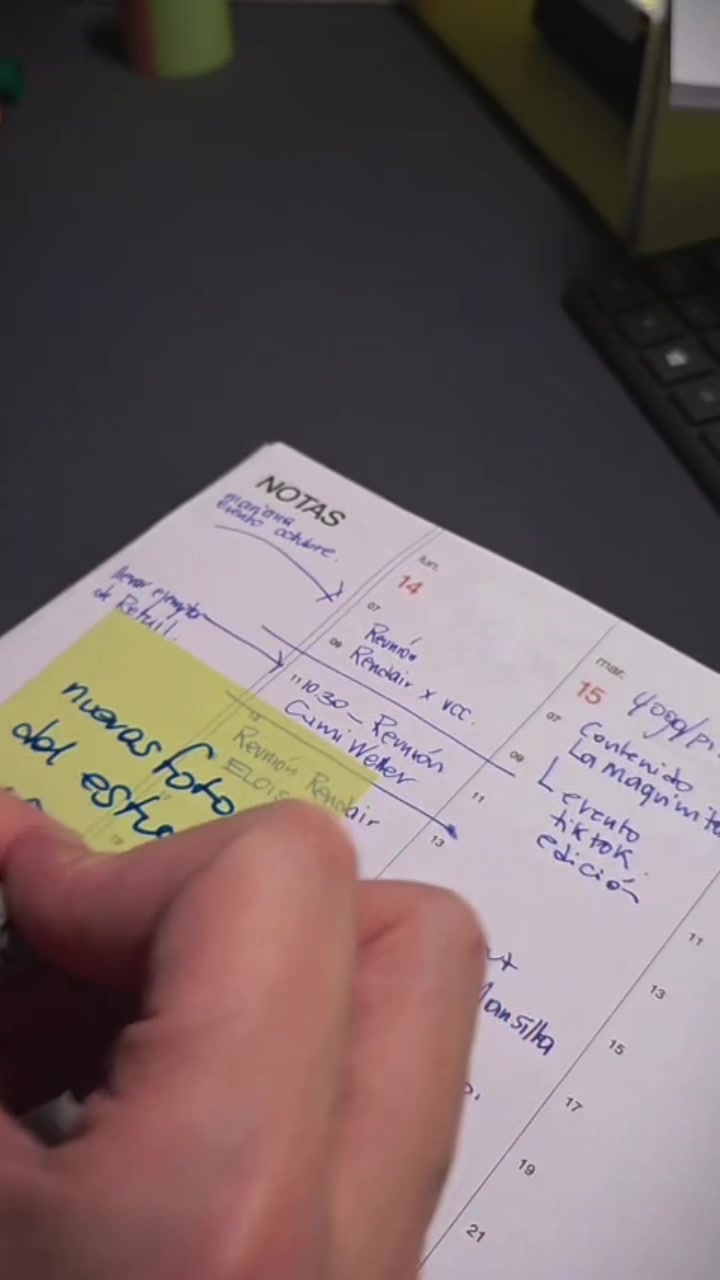 NOTAS
mañana
evento octubre.
llevar ejemplar
de Retail.
nuevas foto
del estu
lun.
14
07
Reunión
09
Rendair x vcc.
11 10.30 - Reunión
Cumi Weller
13
Reunión Rendair
ELOIS
19
Mansilla
mar.
15
yoga/
07
Contenido
La maquinita
09
evento
tiktok
edición
11
11
13
13
15
17
19
21